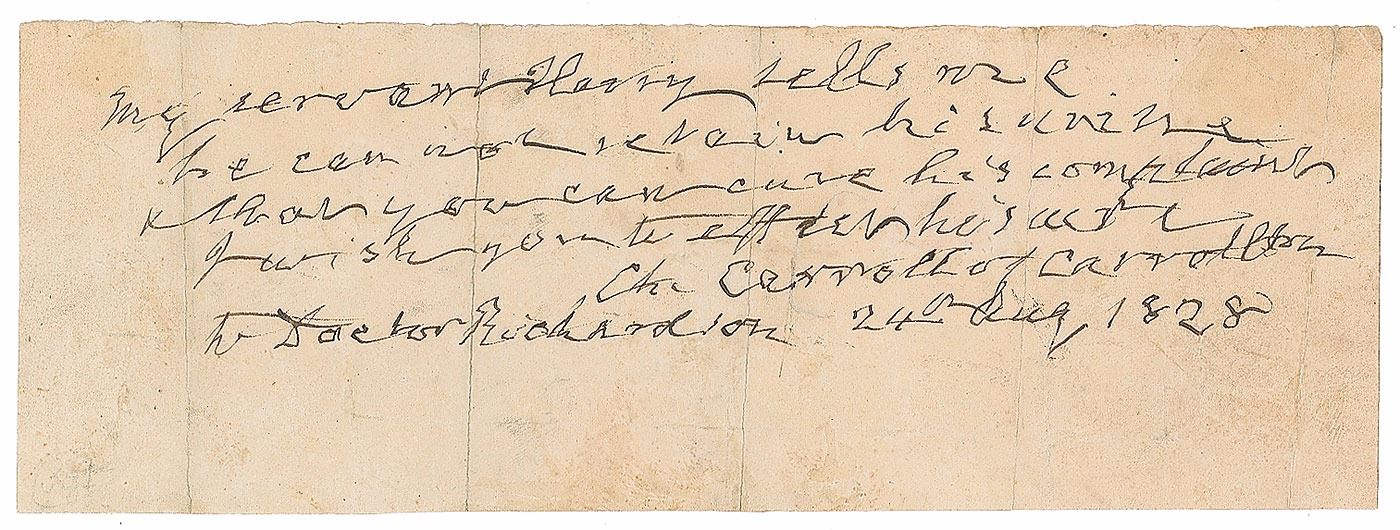 My servant Harry tells me
he can not retain his urine
& that you can cure his complaint
I wish you to effect his cure
Ch. Carroll of Carrollton
to Doctor Richardson 24th Aug 1828